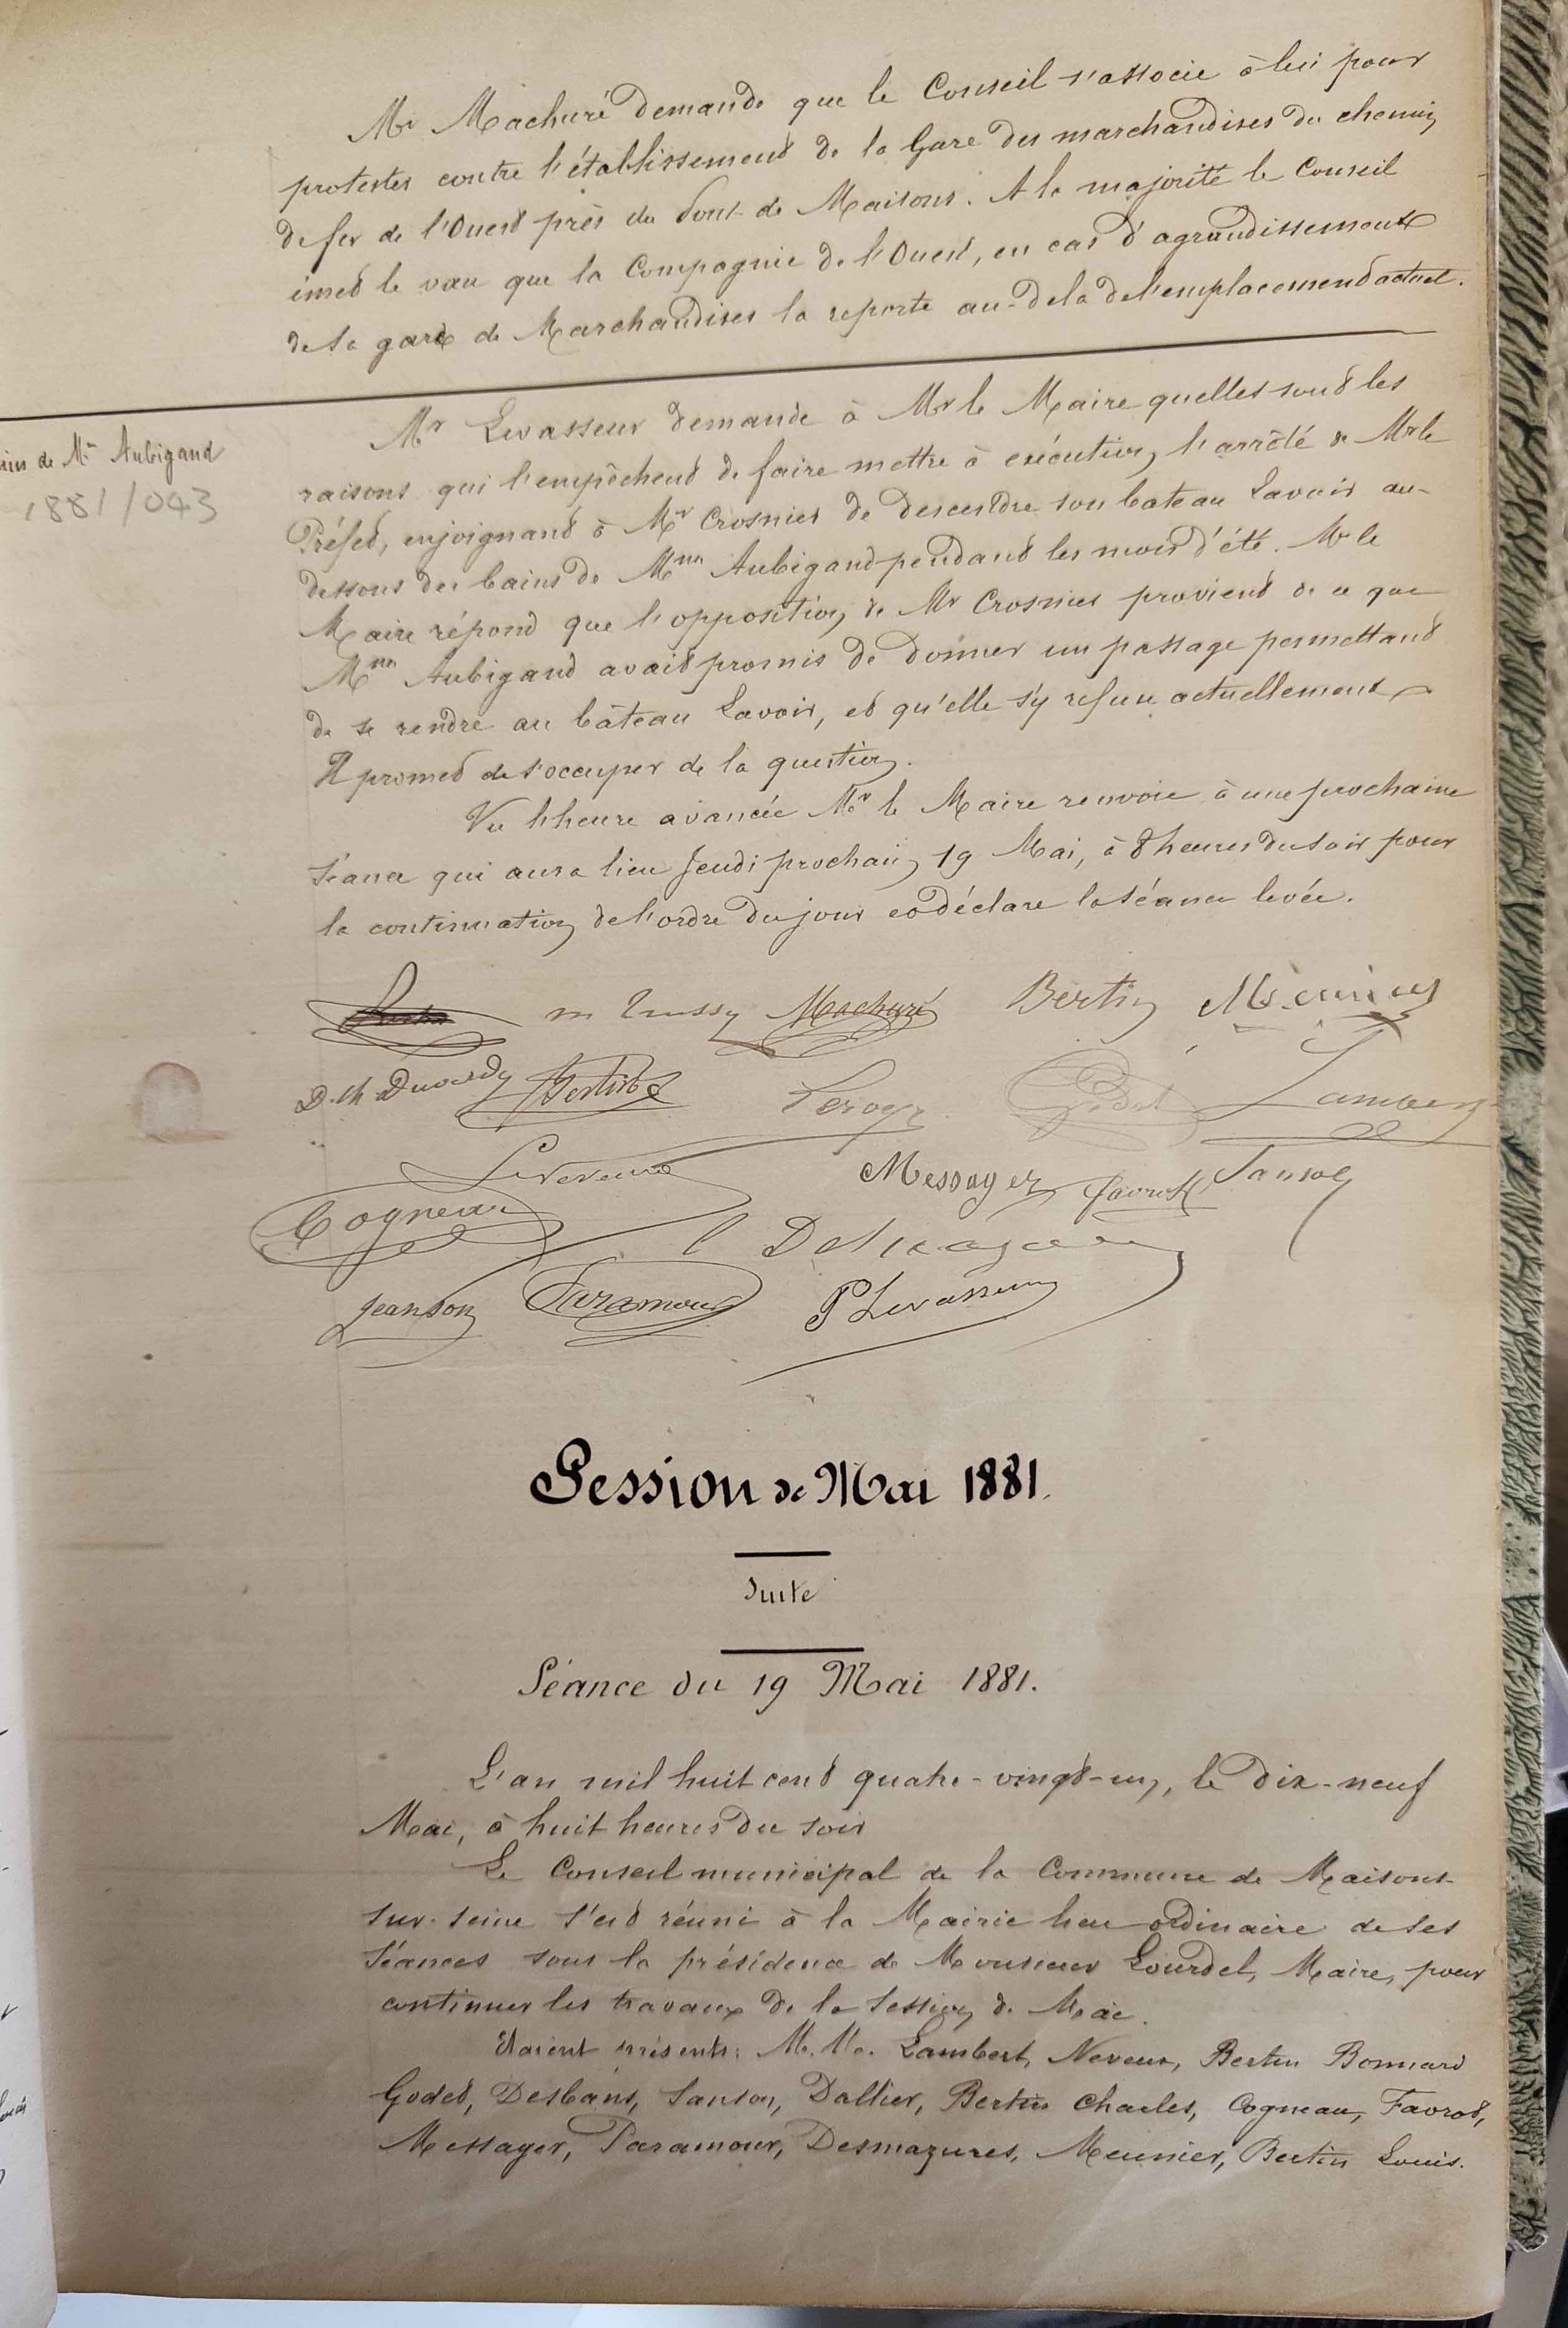 Mr Machuré demande que le Conseil s'associe à lui pour
protester contre l'établissement de la Gare des marchandises du chemin
de fer de l'Ouest près du Pont de Maisons. A la majorité le Conseil
émet le vœu que la Compagnie de l'Ouest, en cas d'agrandissement
de sa gare de Marchandises la reporte au-delà de l'emplacement actuel.
de Mme Aubigand
1881/043
Mr Levasseur demande à Mr le Maire quelles sont les
raisons qui l'empêchent de faire mettre à exécution l'arrêté de Mr le
Préfet, enjoignant à Mr Crosnier de descendre son bateau Lavoir au-
dessous des bains de Mme Aubigand pendant les mois d'été. Mr le
Maire répond que l'opposition de Mr Crosnier provient de ce que
Mme Aubigand avait promis de donner un passage permettant
de se rendre au bâteau Lavoir, et qu'elle s'y refuse actuellement
Il promet de s'occuper de la question.
Vu l'heure avancée Mr le Maire renvoie à une prochaine
séance qui aura lieu Jeudi prochain 19 Mai, à 8 heures du soir pour
la continuation de l'ordre du jour et déclare la séance levée.
Machuré Bertin Meunier
Godet Lambert
Messager Favrot Sanson
Cogneau
Jeanson Paramour P Levasseur
Session de Mai 1881.
Suite
Séance du 19 Mai 1881.
L'an mil huit cent quatre-vingt-un, le dix-neuf
Mai, à huit heures du soir
Le Conseil municipal de la Commune de Maisons-
sur-Seine s'est réuni à la Mairie lieu ordinaire de ses
séances sous la présidence de Monsieur Lourdel, Maire, pour
continuer les travaux de la session de Mai.
Etaient présents: M.M. Lambert, Neveux, Bertin Bonnard
Godet, Desbans, Sanson, Dallier, Bertin Charles, Cogneau, Favrot,
Messager, Paramour, Desmazures, Meunier, Bertin Louis.